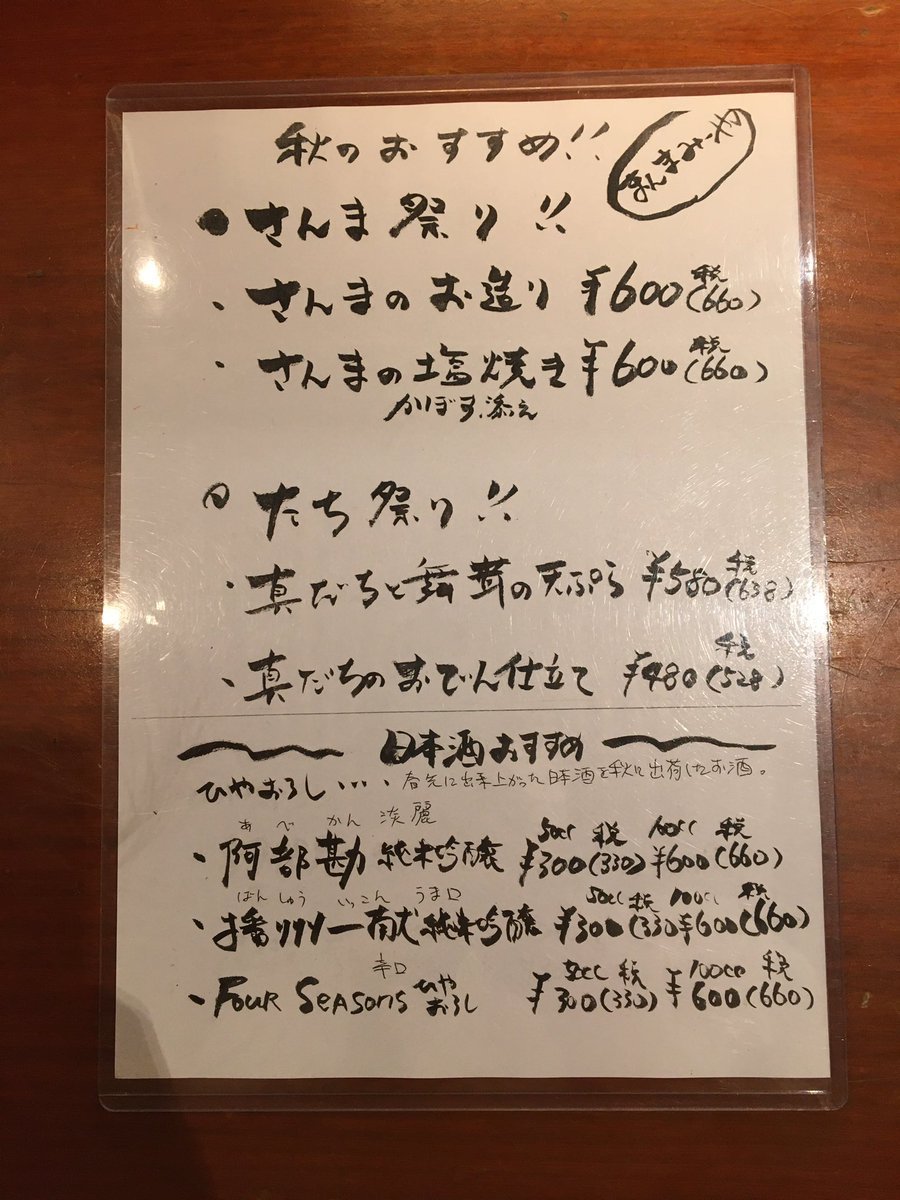 秋のおすすめ!!
●さんま祭り!!
・さんまのお造り ¥600 税(660)
・さんまの塩焼き ¥600 税(660)
かぼす添え
たち祭り!!
・真だちと舞茸の天ぷら ¥580 税(638)
・真だちのおでん仕立て ¥480 税(528)
日本酒おすすめ
ひやおろし・・・春先に出来上がった日本酒を秋に出荷したお酒。
あべ かん 淡麗 50cc 税 100cc 税
・阿部勘 純米吟醸 ¥300(330) ¥600(660)
ばん しゅう いっこん うま口 50cc 税 100cc 税
・播州一献 純米吟醸 ¥300(330 ¥600(660)
辛口 50cc 税 100cc 税
・Four Seasons ひやおろし ¥300(330) ¥600(660)